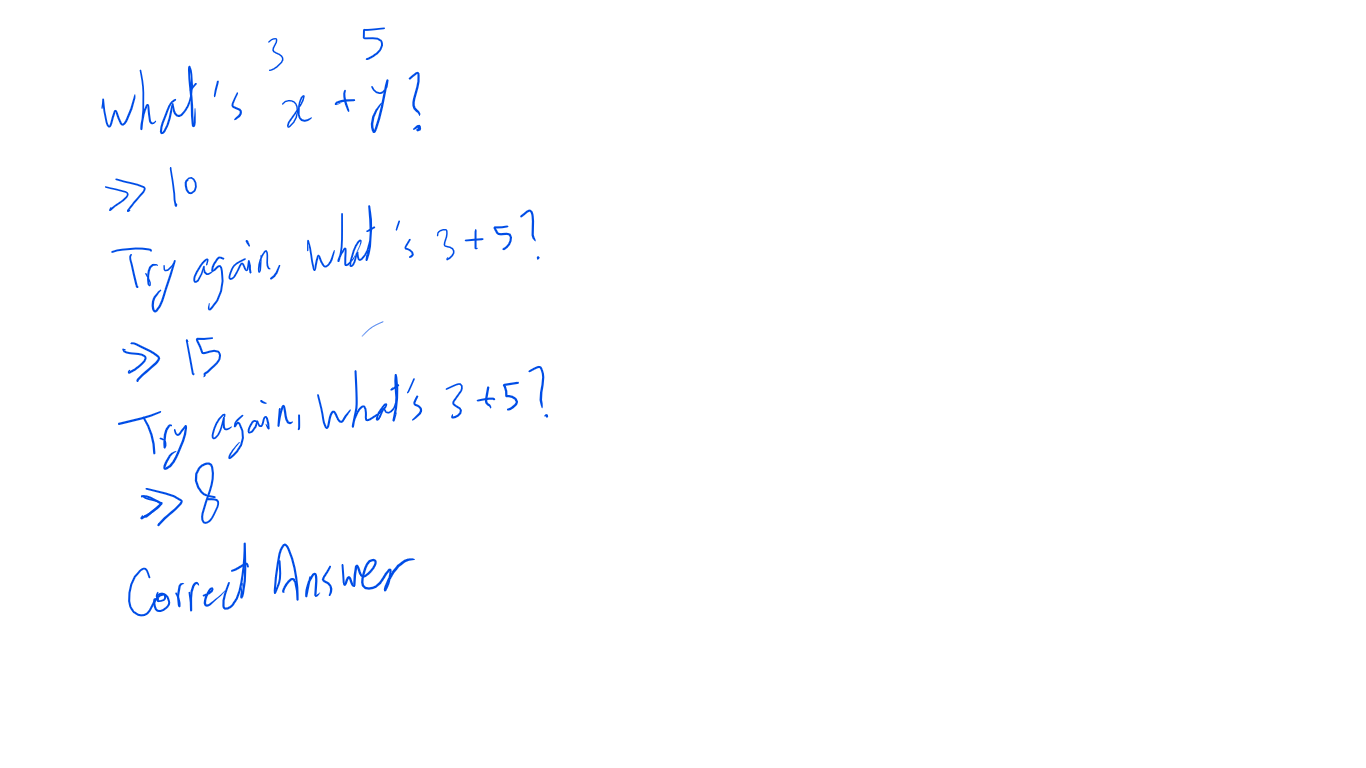 3 5
What's x + y?
>> 10
Try again, What's 3+5?
>> 15
Try again, What's 3+5?
>> 8
Correct Answer